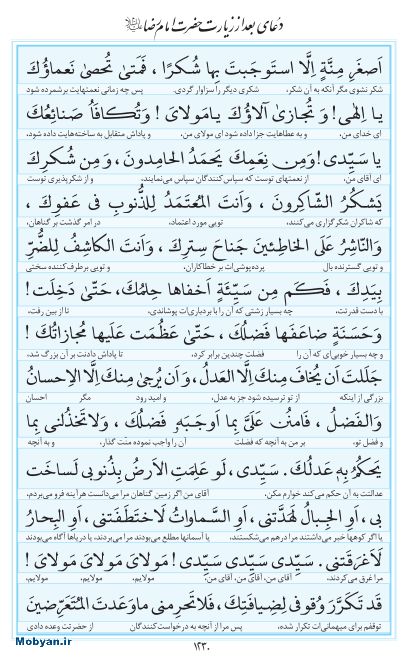 دعای بعد از زیارت حضرت امام رضا
اَصغَرِ مِنَّةٍ اِلَّا استَوجَبتَ بِها شُكرًا ، فَمَتىٰ تُحصىٰ نَعماؤُكَ
شکر نشوی مگر آنکه به آن شکر، شکری دیگر را سزاوار گردی. پس چه زمانی نعمتهایت برشمرده شود
يا اِلٰهى! وَ تُجازىٰ آلاؤُكَ يامَولاىَ ! وَتُكافَأُ صَنائِعُكَ
ای خدای من، و به عطاهایت جزا داده شود ای مولای من، و پاداش متقابل به ساخته‌هایت داده شود،
يا سَيِّدى! وَمِن نِعَمِكَ يَحمَدُ الحامِدونَ ، وَ مِن شُكرِكَ
ای آقای من، از نعمتهای توست که سپاس کنندگان سپاس می‌نمایند، و از شکرپذیری توست
يَشكُرُ الشّاكِرونَ ، وَاَنتَ المُعتَمَدُ لِلذُّنوبِ فى عَفوِكَ ،
که شاکران شکرگزاری می‌کنند، تویی مورد اعتماد، در امر گذشت بر گناهان،
وَالنّاشِرُ عَلَى الخاطِئينَ جَناحَ سِترِكَ ، وَاَنتَ الكاشِفُ لِلضُّرِّ
و تویی گسترنده بال پرده‌پوشی‌ات بر خطاکاران، و تویی برطرف‌کننده سختی
بِيَدِكَ ، فَكَم مِن سَيِّئَةٍ اَخفاها حِلمُكَ، حَتّىٰ دَخِلَت!
با دست قدرتت، چه بسیار زشتی که آن را با بردباری‌ات پوشاندی، تا از بین رفت،
وَ حَسَنَةٍ ضاعَفَها فَضلُكَ ، حَتّىٰ عَظُمَت عَلَيها مُجازاتُكَ !
و چه بسیار خوبی‌ای که آن را فضلت چندین برابر کرد، تا پاداش دادنت بر آن بزرگ شد،
جَلَلتَ اَن يُخافَ مِنكَ اِلَّا العَدلُ ، وَ اَن يُرجىٰ مِنكَ اِلَّا الاِحسانُ
بزرگی از اینکه از تو ترسیده شود جز به عدل، و امید رود مگر احسان
وَ الفَضلُ ، فَامنُن عَلَىَّ بِما اَوجَبَهُ فَضلُكَ ، وَلاتَخذُلنى بِما
و فضل تو، بر من به آنچه که فضلت آن را واجب نموده منّت گذار، و به آنچه
يَحكُمُ بِهِ عَدلُكَ . سَيِّدى ، لَو عَلِمَتِ الاَرضُ بِذُنوبى لَساخَت
عدالتت به آن حکم می‌کند خوارم مکن. آقای من اگر زمین گناهان مرا می‌دانست هرآینه فرو می‌بردم،
بى ، اَوِ الجِبالُ لَهَدَّتنى ، اَوِ السَّماواتُ لَاختَطَفَتنى ، اَوِ البِحارُ
یا اگر کوهها خبر می‌داشتند مرا درهم می‌شکستند، یا آسمانها مطلع می‌بودند مرا می‌بردند، یا دریاها آگاه می‌بودند
لَاَغرَقَتنى . سَيِّدى سَيِّدى سَيِّدى ! مَولاىَ مَولاىَ مَولاىَ !
مرا غرق می‌کردند، آقای من، آقای من، آقای من، مولایم، مولایم، مولایم،
قَد تَكَرَّرَ وُقوفى لِضِيافَتِكَ ، فَلاتَحرِمنى ماوَعَدتَ المُتَعَرِّضينَ
توقفم برای میهمانی‌ات تکرار شده، پس مرا از آنچه به درخواست‌کنندگان از حضرتت وعده دادی
Mobyan.ir
۱۲۳۰